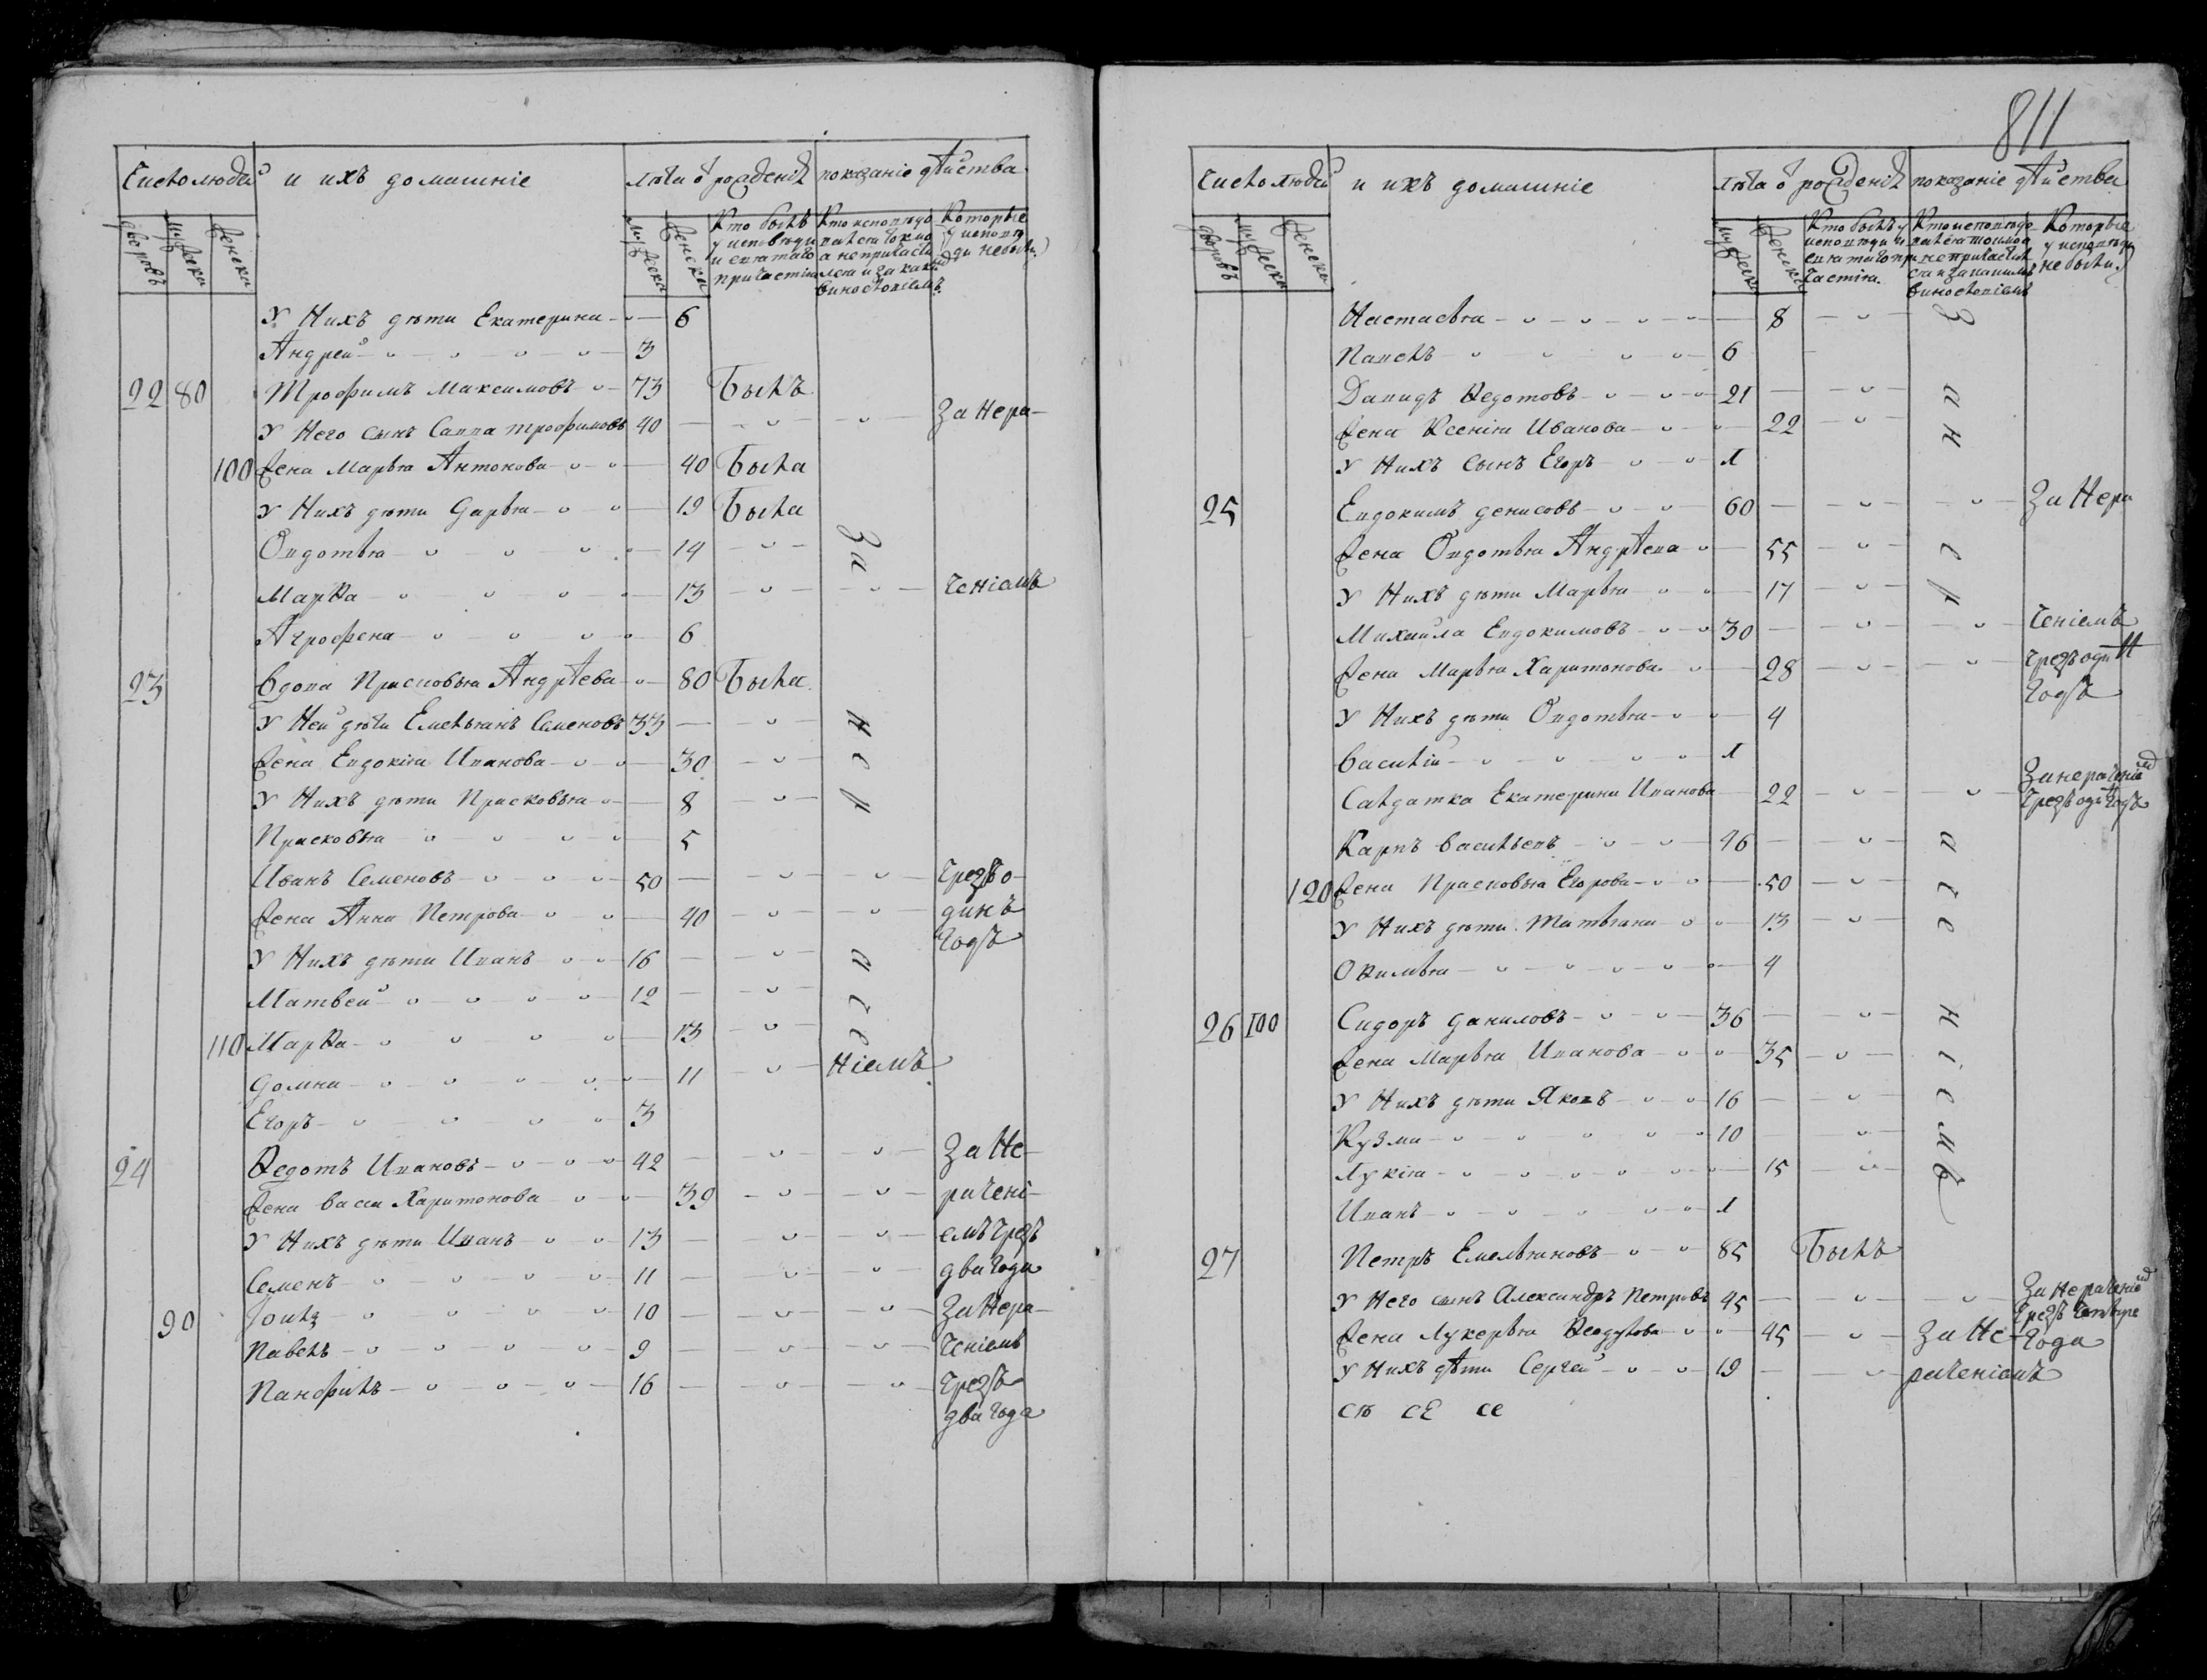 811
Число людей и ихъ домашніе лѣта о рожденіѣ показаніе дѣйства
дворовъ мужеска женска мужеска женска Кто былъ у исповѣди и святаго причастія Кто исповѣдовался токмо а не причастился и за какимъ винословіемъ Которые у исповѣди не были
У Нихъ дѣти Екатерина 6
Андрей 3
22 80 Трофимъ Максимовъ 73 Былъ
У Него сынъ Савва трофимовъ 40 За Нера-
100 жена Марья Антонова 40 Была
У Нихъ дѣти Дарья 19 Была
Овдотья 14 За
Марѳа 13 ченіемъ
Агрофена 6
23 вдова Прасковья Андрѣева 80 Была
У Ней дѣти Емельянъ Семеновъ 33 н
жена Евдокія Иванова 30 е
У Нихъ дѣти Прасковья 8 р
Прасковья 5
Иванъ Семеновъ 50 чрезъ о-
жена Анна Петрова 40 динъ
годъ
У Нихъ дѣти Иванъ 16 а
Матвей 12 ч
110 Марѳа 13 е
Домна 11 ніемъ
Егоръ 3
24 Ѳедотъ Ивановъ 42 За Не-
жена васса Харитонова 39 рачені-
У Нихъ дѣти Иванъ 13 емъ чрезъ
Семенъ 11 два года
90 10 За Нера-
Павелъ 9 ченіемъ
Панфилъ 16 чрезъ
два года
Число людей и ихъ домашніе лѣта о рожденіѣ показаніе дѣйства
дворовъ мужеска женска мужеска женска Кто былъ у исповѣди и святаго причастія. Кто исповѣдовался токмо а не причастился и за какимъ винословіемъ Которые у исповѣди не были
Настасья 8 З
Павелъ 6
Давидъ Ѳедотовъ 21 а
жена Ксенія Иванова 22 н
У Нихъ сынъ Егоръ 1
25 Евдокимъ денисовъ 60 За Нера
жена Овдотья Андрѣева 55 е
У Нихъ дѣти Марья 17 р
Михайла Евдокимовъ 30 ченіемъ
жена Марья Харитонова 28 чрезъ одинъ
годъ
У Нихъ дѣти Овдотья 4
василій 1
Занераченіемъ
Салдатка Екатерина Иванова 22 чрезъ одинъ годъ
Карпъ васильевъ 46 а
120 жена Прасковья Егорова 50 ч
У Нихъ дѣти Татьяна 13 е
Офимья 4
26 100 Сидоръ даниловъ 36 н
жена Марья Иванова 35 і
У Нихъ дѣти Яковъ 16 е
Кузма 10 м
Лукія 15 ъ
Иванъ 1
27 Петръ Емельяновъ 85 Былъ
У Него сынъ Александръ Петровъ 45 За Нераченіемъ
чрезъ четыре
жена Лукерья Ѳеодулова 45 За Не- года
У Нихъ дѣти Сергей 19 раченіемъ
сѣ сЕ се